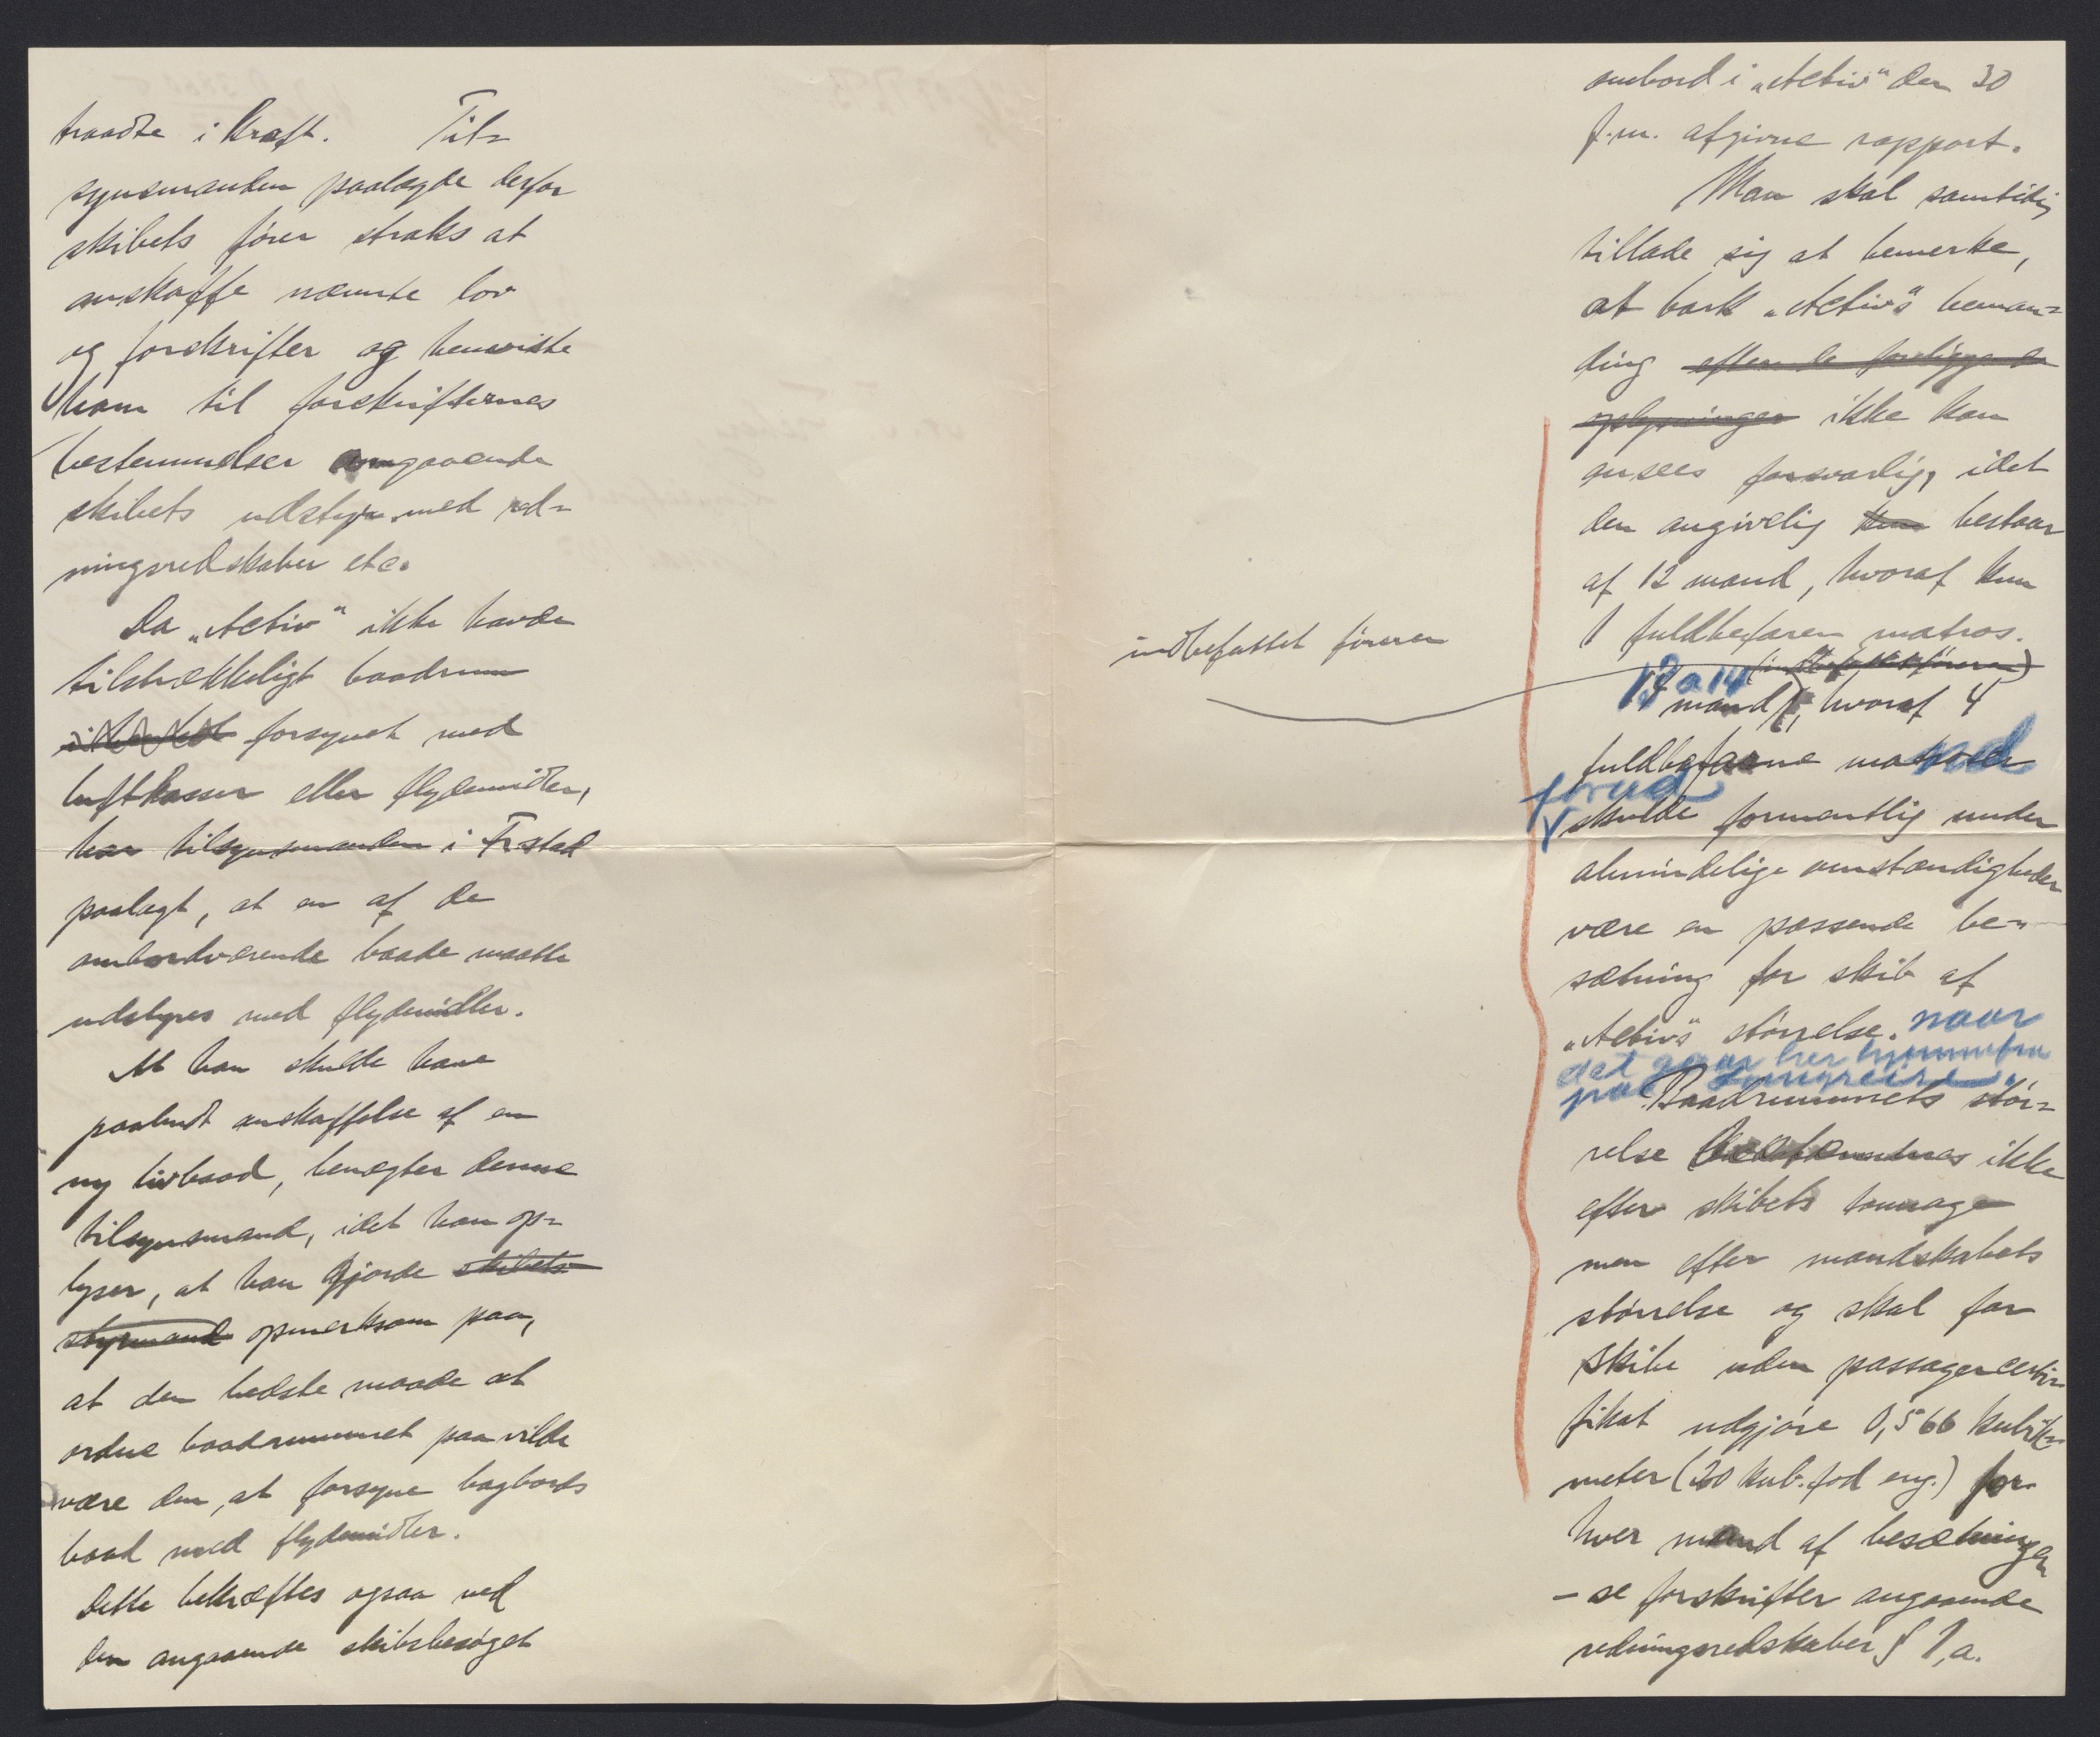 traadte i Kraft. Til-
synsmanden paalagde derfor
skibets fører straks at
anskaffe nævnte lov
og forskrifter og henviste
ham til forskrifternes
bestemmelser angaaende
skibets udstyr med red-
ningsredskaber etc.
Da „Activ" ikke havde
tilstrækkeligt baadrum
forsynet med
luftkasser eller flydemidler,
har tilsynsmanden i Frstad
paalagt, at en af de
ombordværende baade maatte
udstyres med flydemidler.
At han skulde have
paabudt anskaffelse af en
ny livbaad, benægter denne
tilsynsmand, idet han op-
lyser, at han gjorde skibets
styrmand opmerksom paa,
at den bedste maade at
ordne baadrummet paa vilde
være den, at forsyne bagbords
baad med flydemidler.
Dette bekræftes ogsaa ved
den angaaende skibsbesøget
ombord i „Activ" den 30
f.m. afgivne rapport.
Man skal samtidig
tillade sig at bemerke,
at bark „Activ"s beman-
ding efter de foreliggende
oplysninger ikke kan
ansees forsvarlig, idet
den angivelig kun bestaar
af 12 mand, hvoraf kun
1 fuldbefaren matros.
indbefattet føreren
(indbefattet føreren)
13 a 14
mand, hvoraf 4
fuldbefarne matroser
forud
skulde formentlig under
almindelige omstændigheder
være en passende be-
sætning for skib af
„Activ"s størrelse. naar
det gaar her hjemmefra
paa langreise.
Baadrummets stør-
relse ikke
efter skibets tonnage
men efter mandskabets
størrelse og skal for
skibe uden passagercerti-
fikat udgjøre 0,566 kubik-
meter (20 kub. fod eng.) for
hver mand af besætningen
- se forskrifter angaaende
redningsredskaber § 1,a.